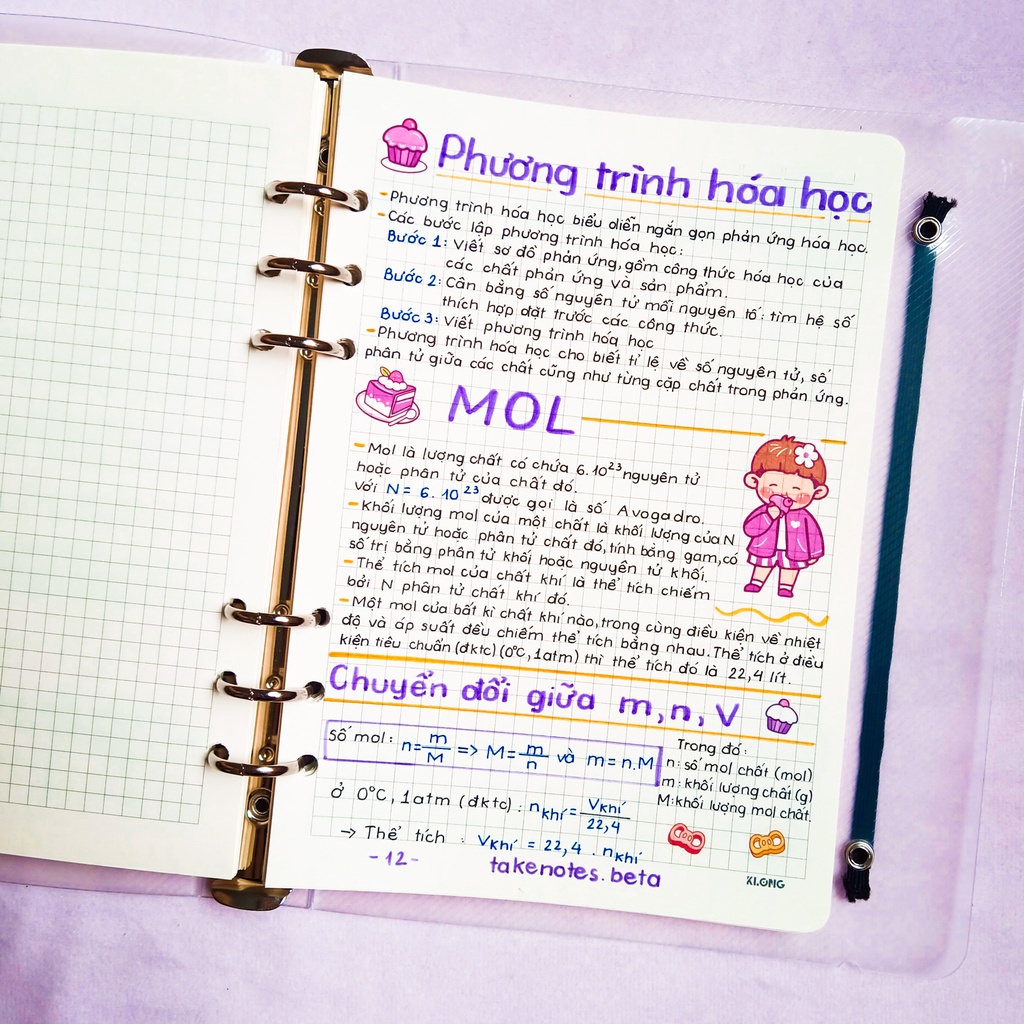 Phương trình hóa học
- Phương trình hóa học biểu diễn ngắn gọn phản ứng hóa học.
- Các bước lập phương trình hóa học:
Bước 1: Viết sơ đồ phản ứng, gồm công thức hóa học của
các chất phản ứng và sản phẩm.
Bước 2: Cân bằng số nguyên tử mỗi nguyên tố: tìm hệ số
thích hợp đặt trước các công thức.
Bước 3: Viết phương trình hóa học
- Phương trình hóa học cho biết tỉ lệ về số nguyên tử, số
phân tử giữa các chất cũng như từng cặp chất trong phản ứng.
MOL
- Mol là lượng chất có chứa 6.10²³ nguyên tử
hoặc phân tử của chất đó.
với N = 6.10²³ được gọi là số Avogadro.
- Khối lượng mol của một chất là khối lượng của N
nguyên tử hoặc phân tử chất đó, tính bằng gam, có
số trị bằng phân tử khối hoặc nguyên tử khối.
- Thể tích mol của chất khí là thể tích chiếm
bởi N phân tử chất khí đó.
- Một mol của bất kì chất khí nào, trong cùng điều kiện về nhiệt
độ và áp suất đều chiếm thể tích bằng nhau. Thể tích ở điều
kiện tiêu chuẩn (đktc) (0°C, 1atm) thì thể tích đó là 22,4 lít.
Chuyển đổi giữa m, n, V
số mol: n = m/M => M = m/n và m = n.M
Trong đó:
n: số mol chất (mol)
m: khối lượng chất (g)
M: khối lượng mol chất.
ở 0°C, 1atm (đktc): n khí = V khí / 22,4
→ Thể tích : V khí = 22,4 . n khí
- 12 -
takenotes.beta
KLONG